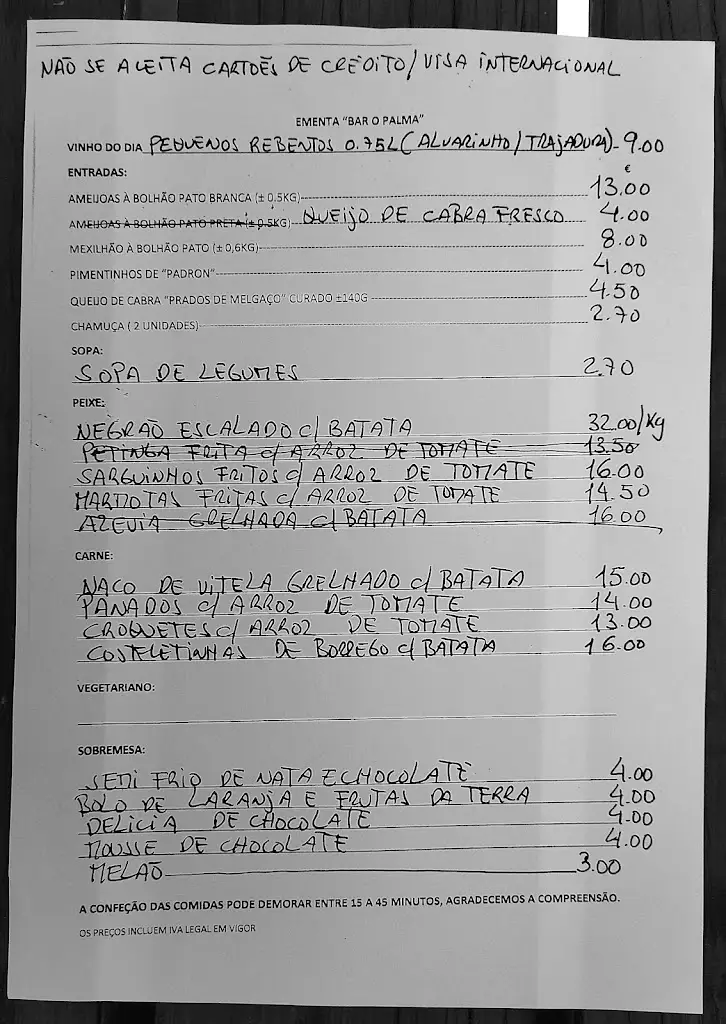 NÃO SE ACEITA CARTOÊS DE CREOITO/VISA INTERNACIONAL
EMENTA "BAR O PALMA"
VINHO DO DIA PEQUENOS REBENTOS 0.75L (ALVARINHO/TRAJADURA)-9.00
ENTRADAS: €
AMEIJOAS À BOLHÃO PATO BRANCA (± 0,5KG) 13.00
AMEIJOAS À BOLHÃO PATO PRETA (± 0,5KG) QUEIJO DE CABRA FRESCO 4.00
MEXILHÃO À BOLHÃO PATO (± 0,6KG) 8.00
PIMENTINHOS DE "PADRON" 4.00
QUEIJO DE CABRA "PRADOS DE MELGAÇO" CURADO ±140G 4.50
CHAMUÇA ( 2 UNIDADES) 2.70
SOPA:
SOPA DE LEGUMES 2.70
PEIXE:
NEGRÃO ESCALADO c/ BATATA 32.00/Kg
PETINGA FRITA c/ ARROZ DE TOMATE 13.50
SARGUINHOS FRITOS c/ ARROZ DE TOMATE 16.00
MARMOTAS FRITAS c/ ARROZ DE TOMATE 14.50
AZEVIA GRELHADA c/ BATATA 16.00
CARNE:
NACO DE VITELA GRELHADO c/ BATATA 15.00
PANADOS c/ ARROZ DE TOMATE 14.00
CROQUETES c/ ARROZ DE TOMATE 13.00
COSTELETINHAS DE BORREGO c/ BATATA 16.00
VEGETARIANO:
SOBREMESA:
SEMI FRIO DE NATA E CHOCOLATE 4.00
BOLO DE LARANJA E FRUTAS DA TERRA 4.00
DELICIA DE CHOCOLATE 4.00
MOUSSE DE CHOCOLATE 4.00
MELÃO 3.00
A CONFEÇÃO DAS COMIDAS PODE DEMORAR ENTRE 15 A 45 MINUTOS, AGRADECEMOS A COMPREENSÃO.
OS PREÇOS INCLUEM IVA LEGAL EM VIGOR